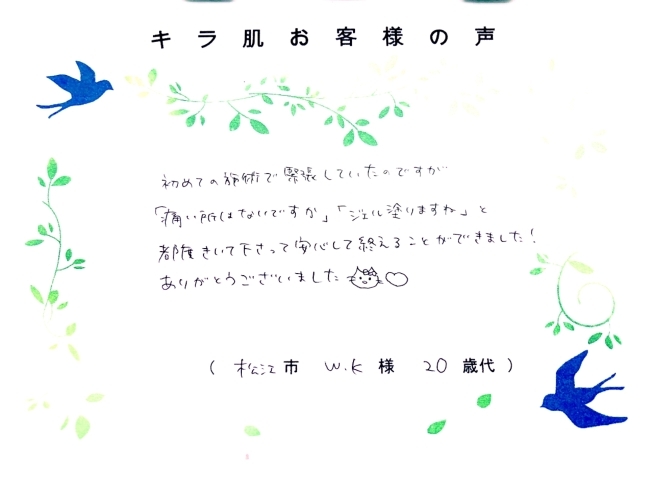 キラ肌お客様の声
初めての施術で緊張していたのですが
「痛い所はないですか」「ジェル塗りますね」と
都度きいて下さって安心して終えることができました！
ありがとうございました
(松江市 W.K様 20歳代)